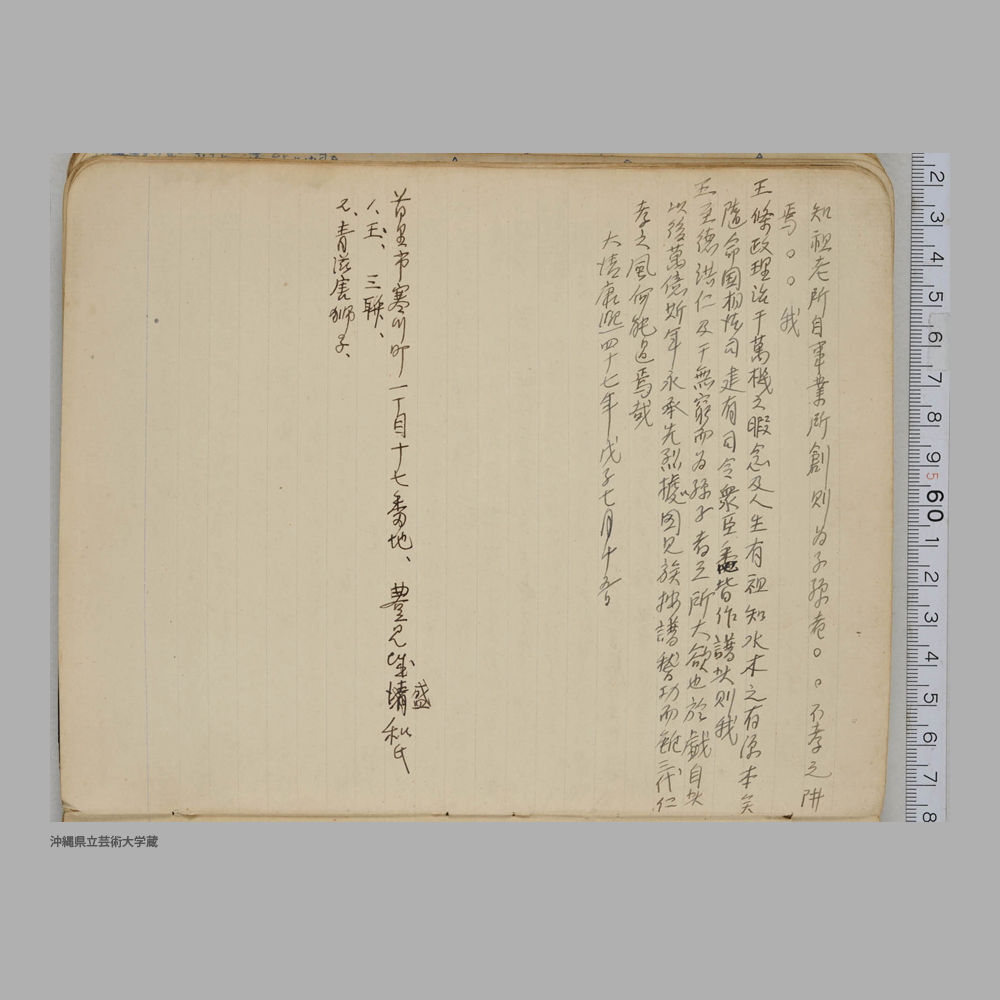 知祖考所自軍業所創則為子孫者〇〇不孝之阱
焉〇〇我
王條政理治千萬機之暇念及人生有祖知水木之有源本矣
隨命国相法司走有司令衆臣皆作譜焚則我
王至德洪仁及于無窮而為孫子者之所大欲也於戯自焚
以後萬億斯年永承先烈攄图見族按譜整功而雖三代仁
孝之風何能過焉哉
大清康熙四十七年戊子七月十五日
首里市寒川町一丁目十七番地、豊見城盛和氏
1、玉、三聯、
2、青滋唐獅子、
2 3 4 5 6 7 8 9 5 60 1 2 3 4 5 6 7 8
沖縄県立芸術大学蔵